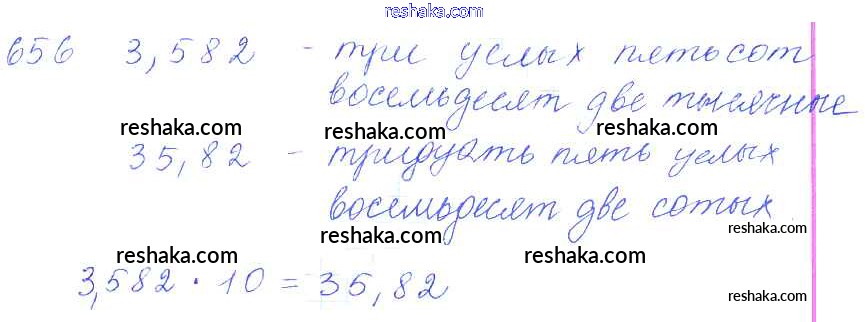 reshaka.com
656 3,582 - три целых пятьсот
восемьдесят две тысячные
reshaka.com reshaka.com reshaka.com
35,82 - тридцать пять целых
восемьдесят две сотых
reshaka.com reshaka.com reshaka.com
reshaka.com
3,582 · 10 = 35,82
reshaka.com